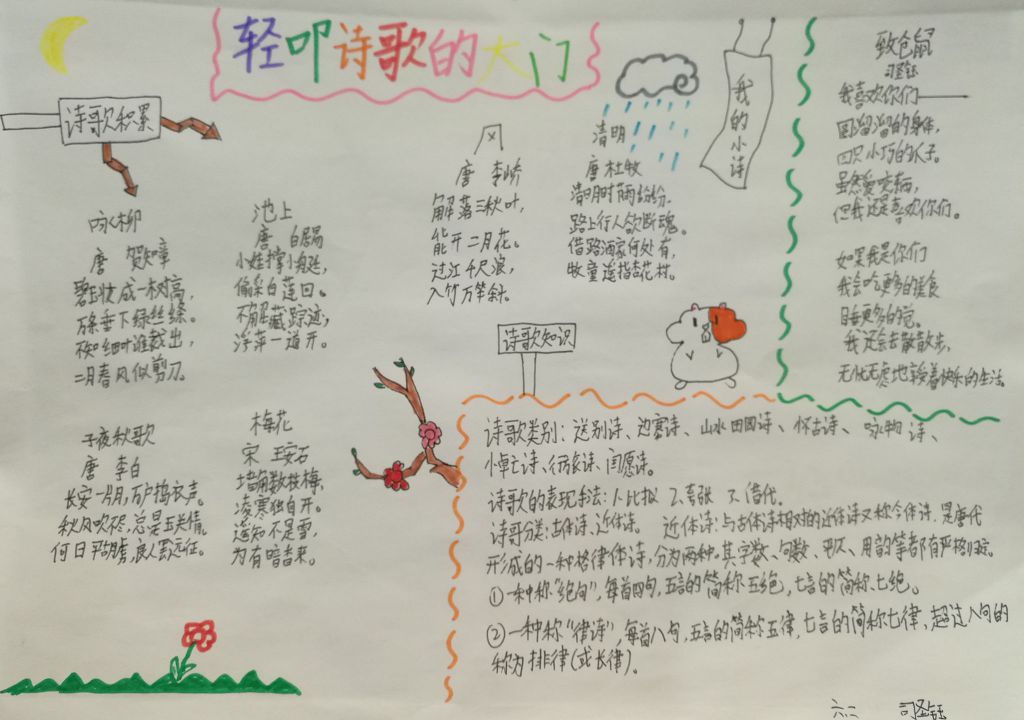 轻叩诗歌的大门
诗歌积累
咏柳
唐 贺知章
碧玉妆成一树高，
万条垂下绿丝绦。
不知细叶谁裁出，
二月春风似剪刀。
池上
唐 白居易
小娃撑小艇，
偷采白莲回。
不解藏踪迹，
浮萍一道开。
风
唐 李峤
解落三秋叶，
能开二月花。
过江千尺浪，
入竹万竿斜。
清明
唐 杜牧
清明时雨纷纷，
路上行人欲断魂。
借路酒家何处有，
牧童遥指杏花村。
子夜秋歌
唐 李白
长安一片月，万户捣衣声。
秋风吹不尽，总是玉关情。
何日平胡虏，良人罢远征。
梅花
宋 王安石
墙角数枝梅，
凌寒独自开。
遥知不是雪，
为有暗香来。
我的小诗
致仓鼠
我喜欢你们——
圆溜溜的身体，
四只小巧的爪子。
虽然爱咬柄，
但我还是喜欢你们。
如果我是你们
我会吃更多的粮食
睡更多的觉。
我还会去散散步，
无忧无虑地享受着快乐的生活。
诗歌知识
诗歌类别：送别诗、边塞诗、山水田园诗、怀古诗、咏物诗、
悼亡诗、行役诗、闺怨诗。
诗歌的表现手法：1、比拟 2、夸张 3、借代。
诗哥分类：古体诗、近体诗。 近体诗：与古体诗相对的近体诗又称今体诗，是唐代
形成的一种格律体诗，分为两种，其字数、句数、平仄、用韵等都有严格规定。
①一种称“绝句”，每首四句，五言的简称五绝，七言的简称七绝。
②一种称“律诗”，每首八句，五言的简称五律，七言的简称七律，超过八句的
称为排律(或长律)。
六二